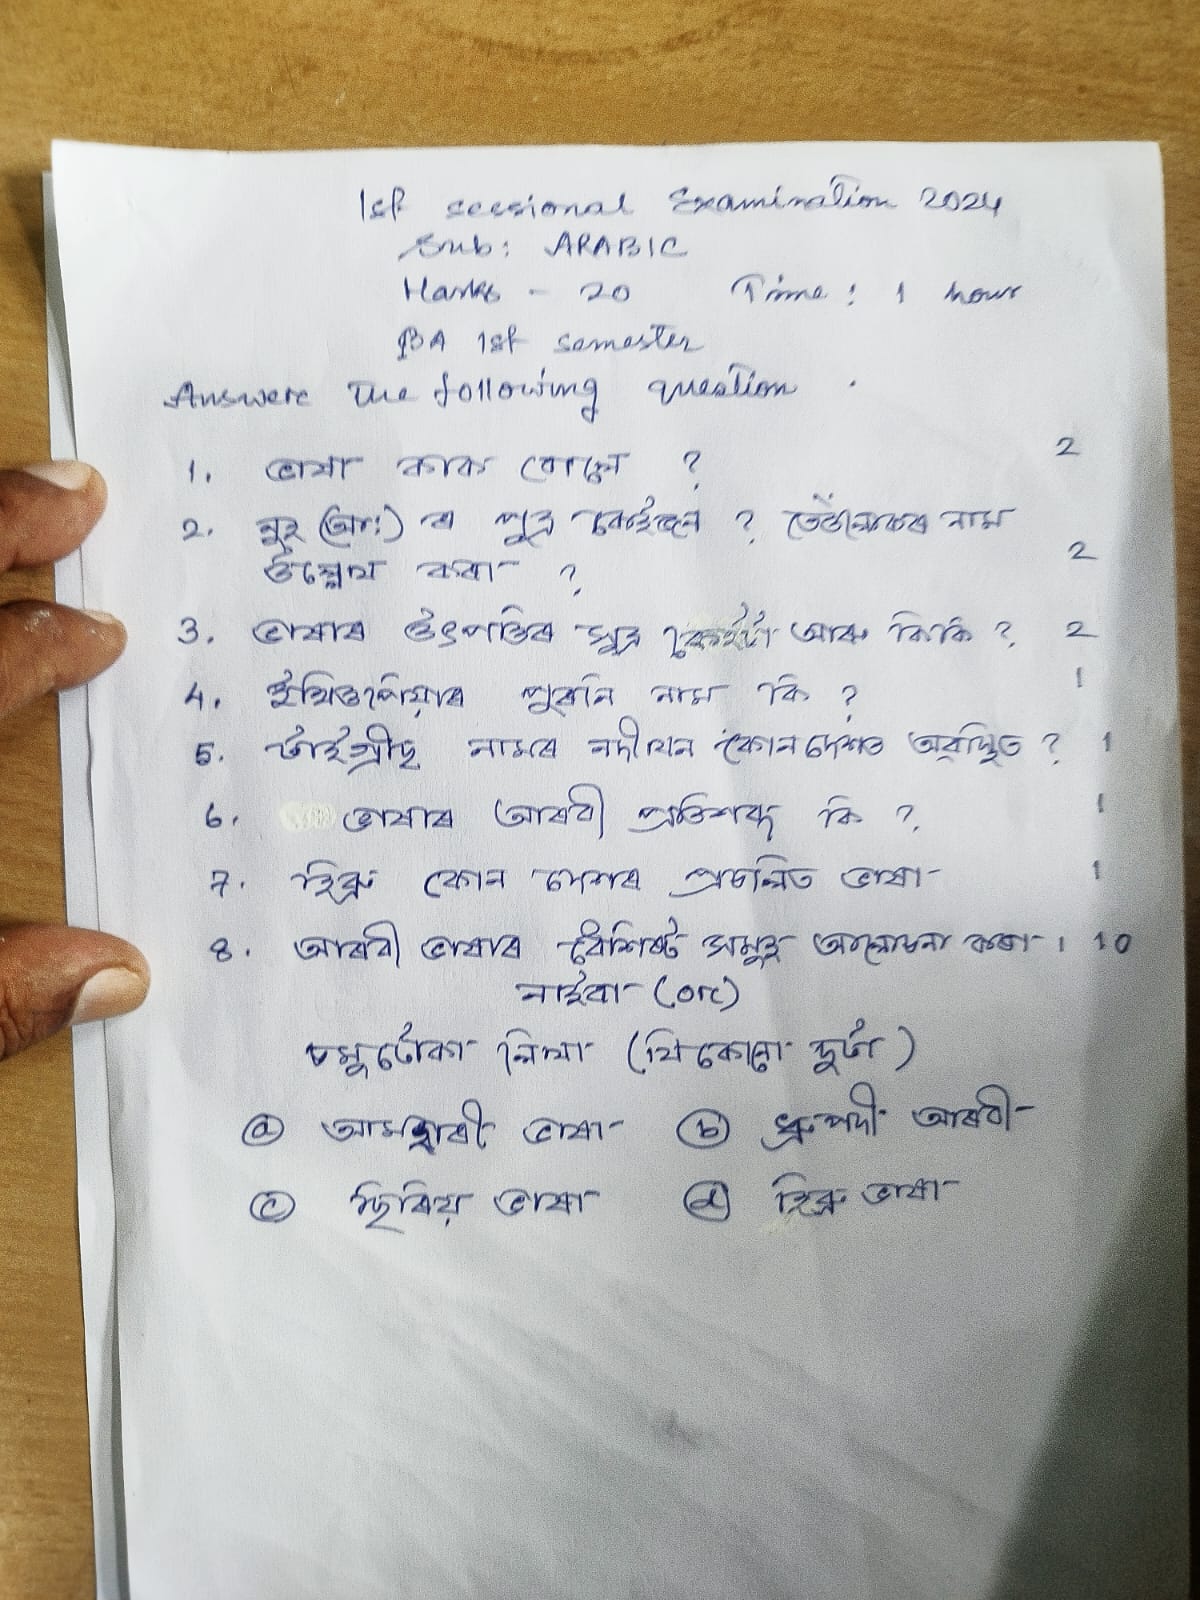 1st sessional Examination 2024
Sub: ARABIC
Marks - 20 Time: 1 hour
BA 1st semester
Answere the following question.
1. ভাষা কাক বোলে ? 2
2. নুহ (আঃ) ৰ পুত্ৰ কেইজন ? তেওঁলোকৰ নাম
উল্লেখ কৰা ? 2
3. ভাষাৰ উৎপত্তিৰ সূত্ৰ কেইটা আৰু কি কি ? 2
4. ইথিওপিয়াৰ পুৰনি নাম কি ? 1
5. টাইগ্ৰীছ নামৰ নদীখন কোন দেশত অৱস্থিত ? 1
6. ভাষাৰ আৰবী প্ৰতিশব্দ কি ? 1
7. হিব্ৰু কোন দেশৰ প্ৰচলিত ভাষা 1
8. আৰবী ভাষাৰ বৈশিষ্ট সমুহ আলোচনা কৰা । 10
নাইবা (or)
চমুটোকা লিখা (যি কোনো দুটা)
(a) আমহাৰী ভাষা (b) ধ্ৰুপদী আৰবী
(c) ছিৰিয় ভাষা (d) হিব্ৰু ভাষা